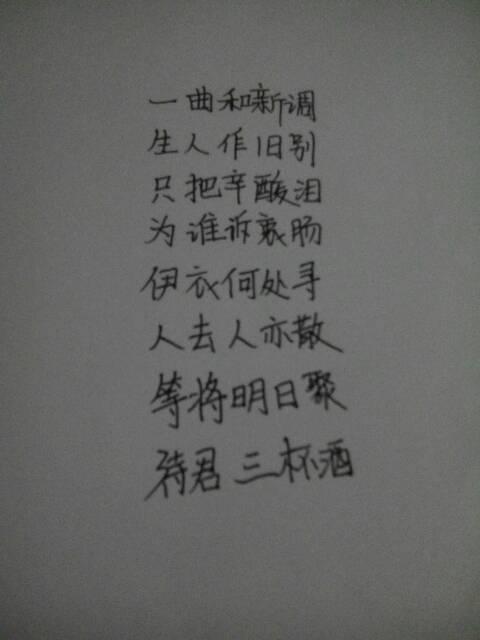 一曲和新调
生人作旧别
只把辛酸泪
为谁诉衷肠
伊衣何处寻
人去人亦散
等将明日聚
待君三杯酒